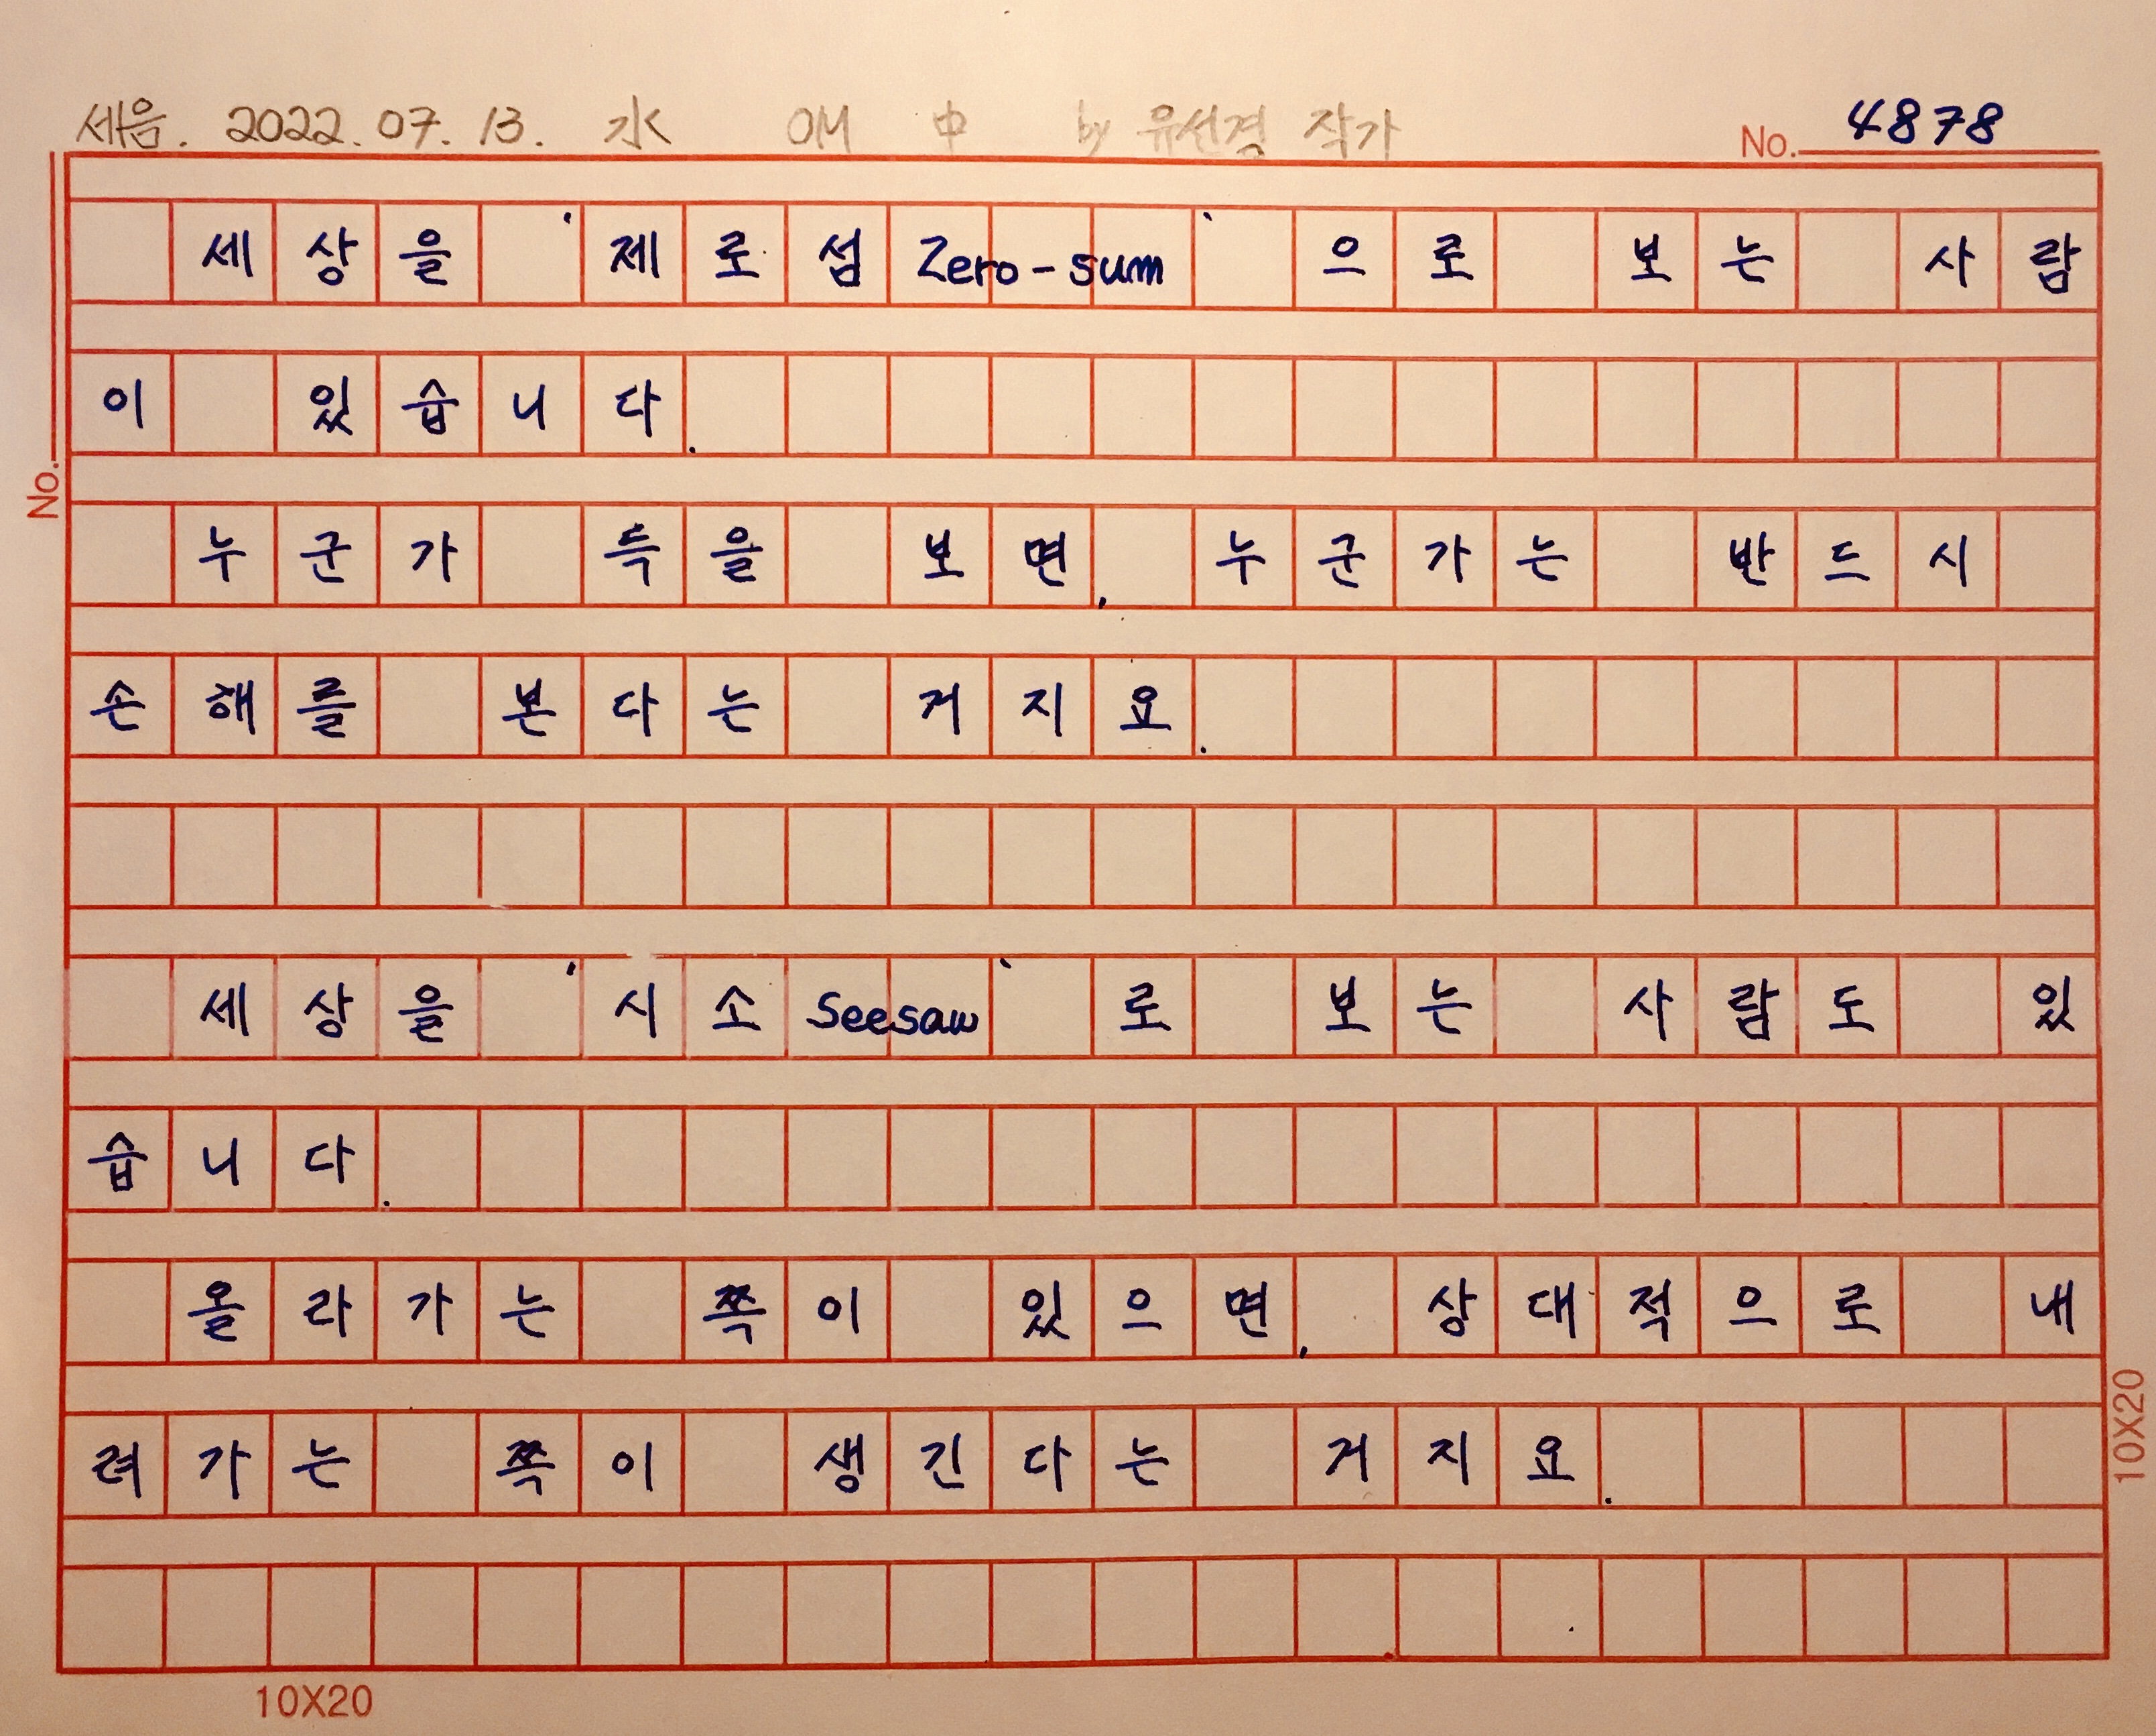 세음. 2022. 07. 13. 水 OM 中 by 유선경 작가
No. 4878
세상을 '제로섬 Zero-sum' 으로 보는 사람
이 있습니다.
누군가 득을 보면, 누군가는 반드시
손해를 본다는 거지요.
세상을 '시소 Seesaw' 로 보는 사람도 있
습니다.
올라가는 쪽이 있으면, 상대적으로 내
려가는 쪽이 생긴다는 거지요.
No.
10X20
10X20